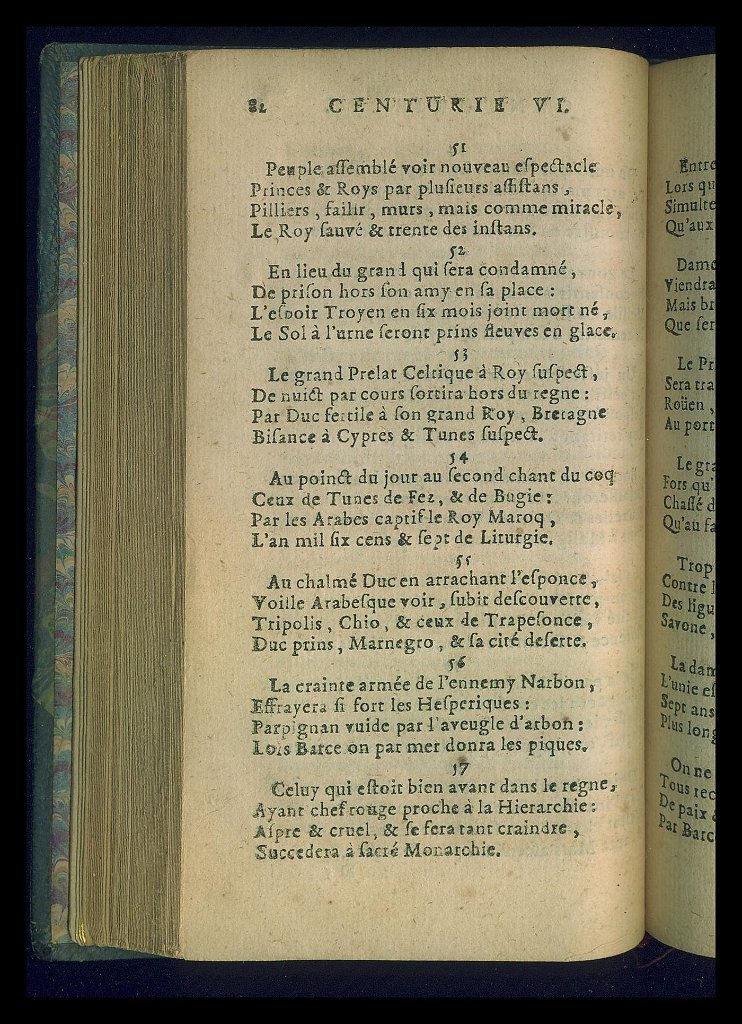 82 CENTURIE VI.
51
Peuple assemblé voir nouveau espectacle
Princes & Roys par plusieurs assistans,
Pilliers, faillr, murs, mais comme miracle,
Le Roy sauvé & trente des instans.
52
En lieu du grand qui sera condamné,
De prison hors son amy en sa place:
L'espoir Troyen en six mois joint mort né,
Le Sol à l'urne seront prins fleuves en glace.
53
Le grand Prelat Celtique à Roy suspect,
De nuict par cours sortira hors du regne:
Par Duc fertile à son grand Roy, Bretagne
Bisance à Cypres & Tunes suspect.
54
Au poinct du jour au second chant du coq
Ceux de Tunes de Fez, & de Bugie:
Par les Arabes captif le Roy Maroq,
L'an mil six cens & sept de Liturgie.
55
Au chalmé Duc en arrachant l'esponce,
Voille Arabesque voir, subit descouverte,
Tripolis, Chio, & ceux de Trapesonce,
Duc prins, Marnegro, & sa cité deserte.
56
La crainte armée de l'ennemy Narbon,
Effrayera si fort les Hesperiques:
Parpignan vuide par l'aveugle d'arbon:
Lors Barce on par mer donra les piques.
57
Celuy qui estoit bien avant dans le regne,
Ayant chef rouge proche à la Hierarchie:
Aspre & cruel, & se fera tant craindre,
Succedera à sacré Monarchie.
Entre
Lors qu
Simulte
Qu'aux
Dame
Viendra
Mais br
Que ser
Le Pr
Sera tra
Roüen,
Au port
Le gra
Fors qu'
Chassé d
Qu'au fa
Trop
Contre l
Des ligu
Savone,
La dam
L'unie es
Sept ans
Plus long
On ne
Tous rec
De paix
Par Barc